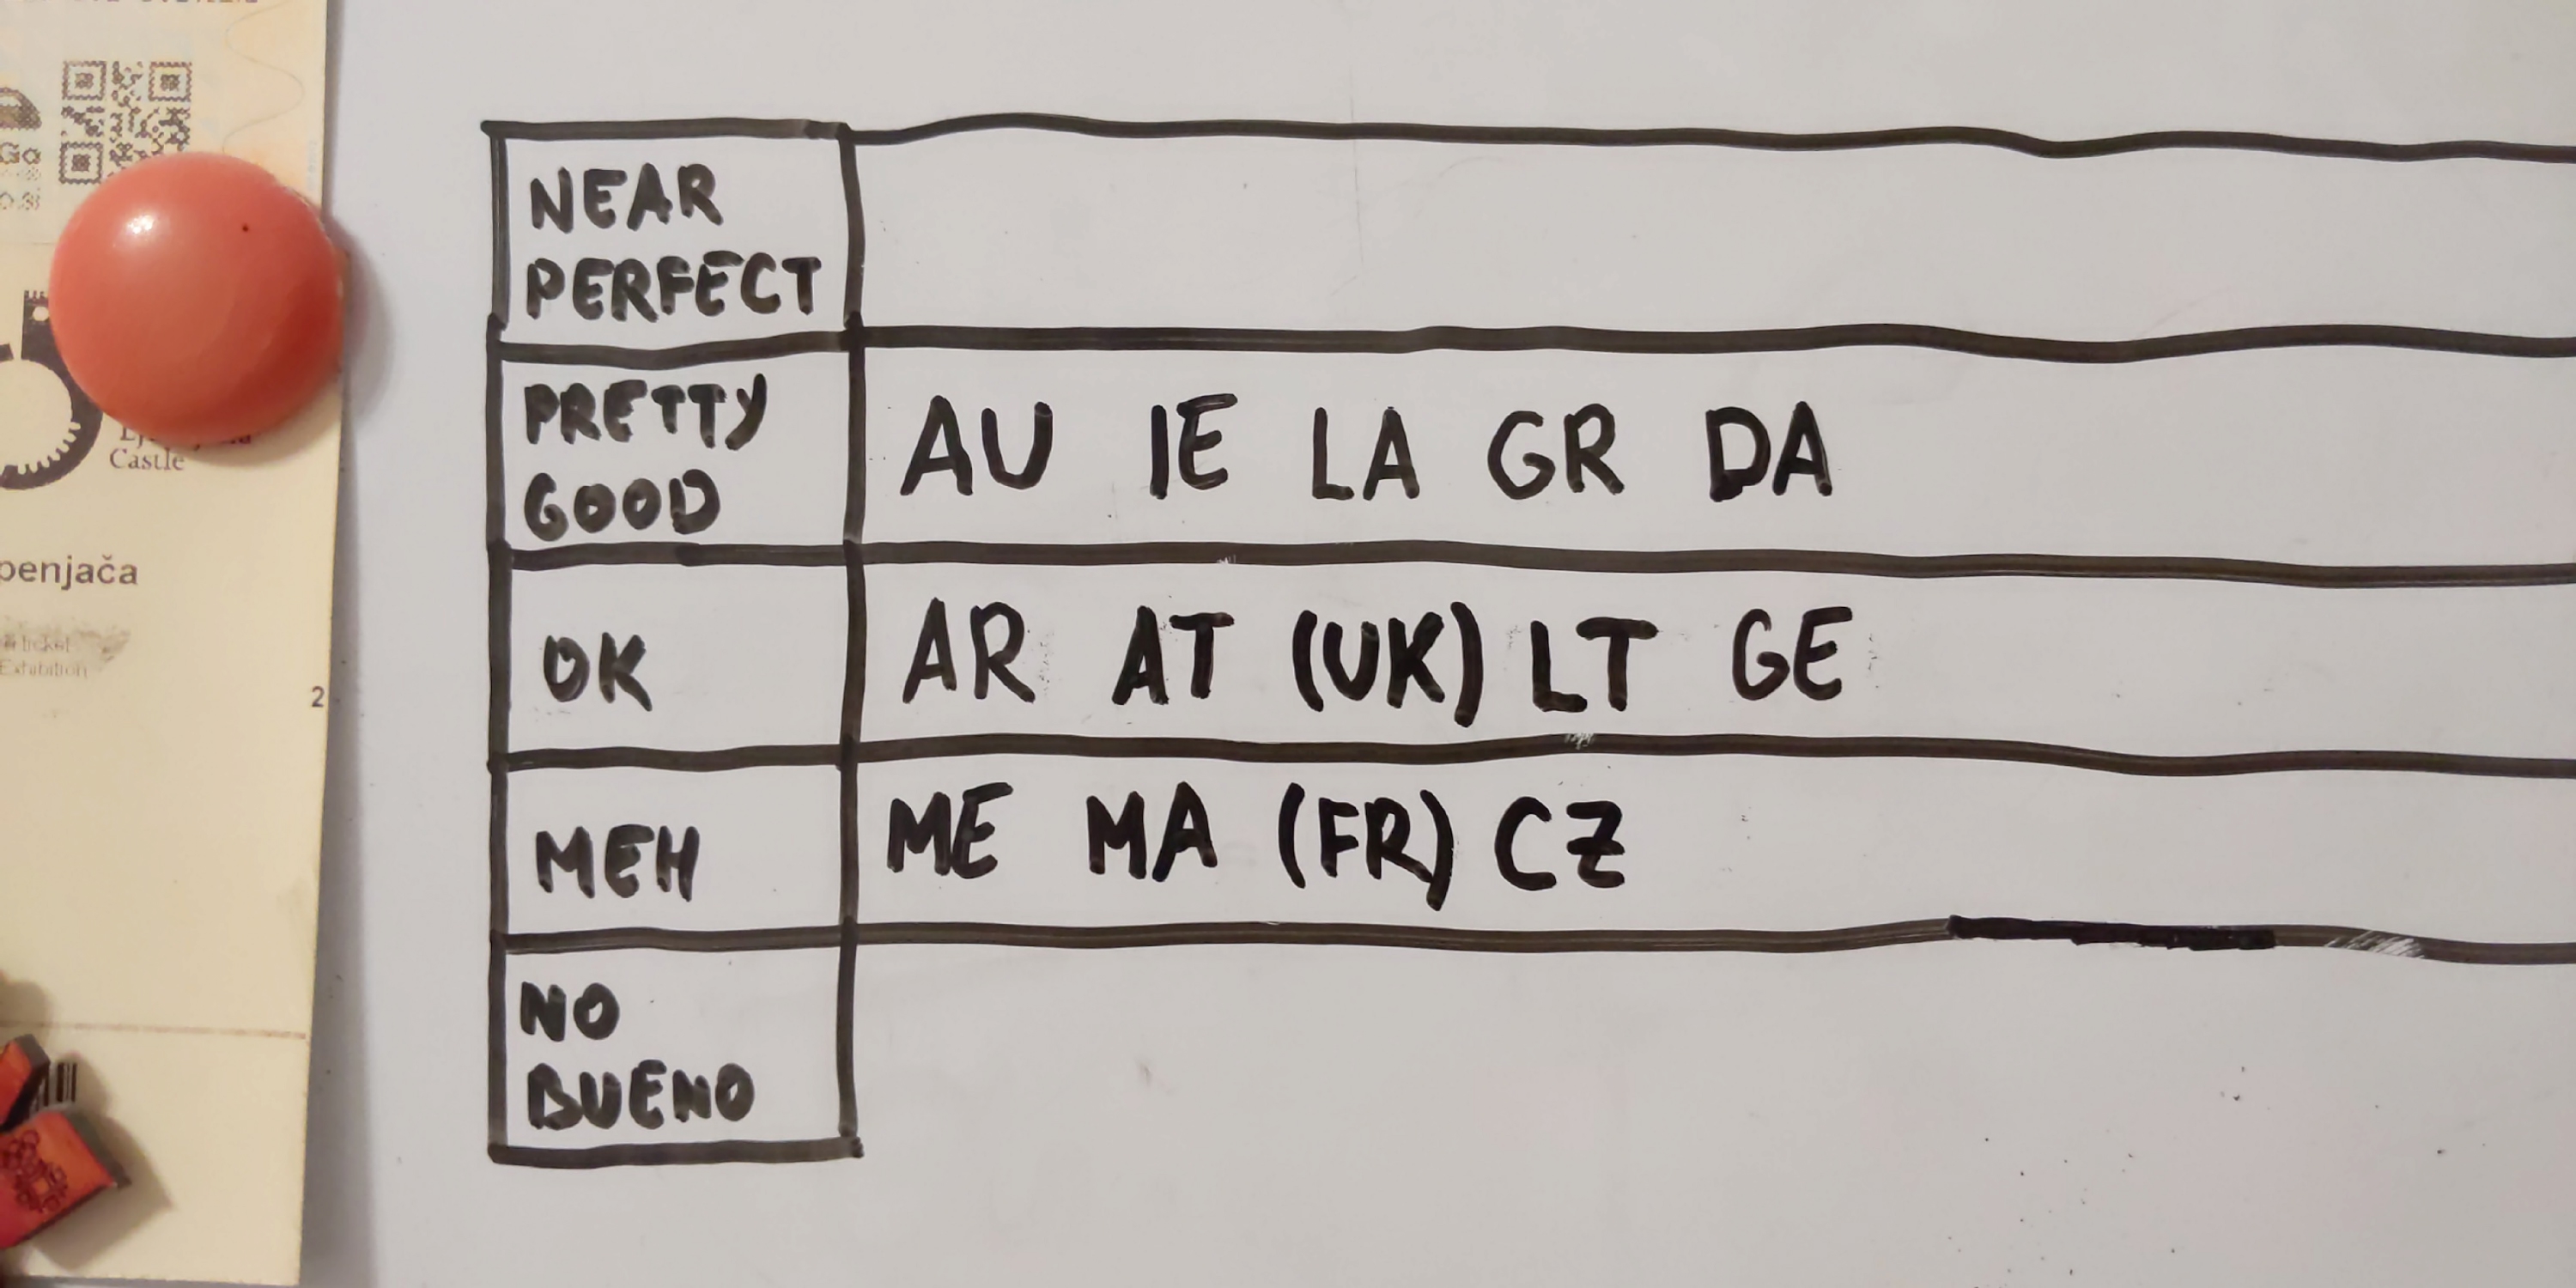 Ga
Castle
penjača
Exhibition
2
NEAR
PERFECT
PRETTY
GOOD
AU IE LA GR DA
OK
AR AT (UK) LT GE
MEH
ME MA (FR) CZ
NO
BUENO